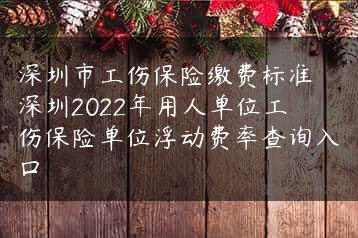 深圳市工伤保险缴费标准
深圳2022年用人单位工
伤保险单位浮动费率查询入
口